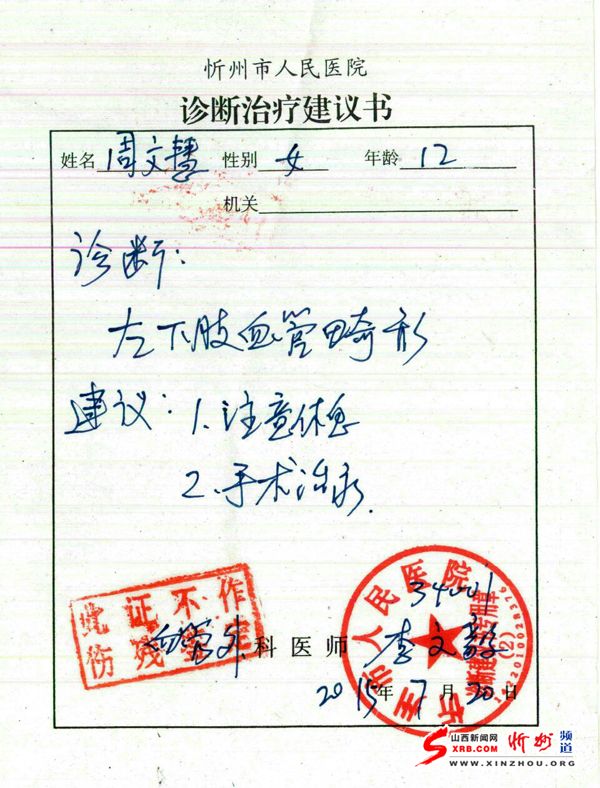 忻州市人民医院
诊断治疗建议书
姓名 周文慧 性别 女 年龄 12
机关
诊断：
左下肢血管畸形
建议：1.注意休息
2.手术治疗.
此证不作
伤残鉴定
34001
血管外科医师 李文毅
2015年7月20日
山西新闻网
SXRB.COM
忻州
频道
WWW.XINZHOU.ORG